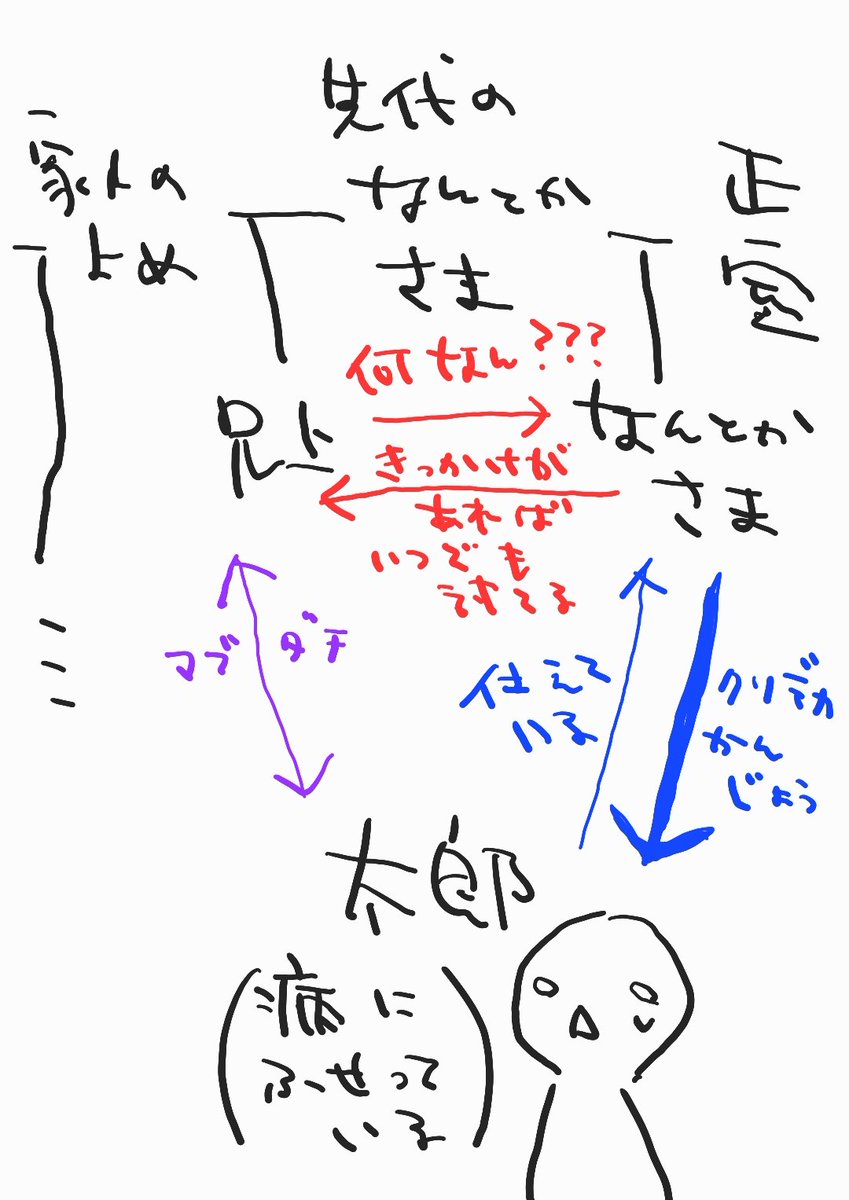 家人の
よめ
先代の
なんとか
さま
正室
足
なんとか
さま
何なん???
きっかけが
あれば
いつでも
マブダチ
仕えて
いる
クソデカ
かん
じょう
太郎
(病に
ふせって
いる)